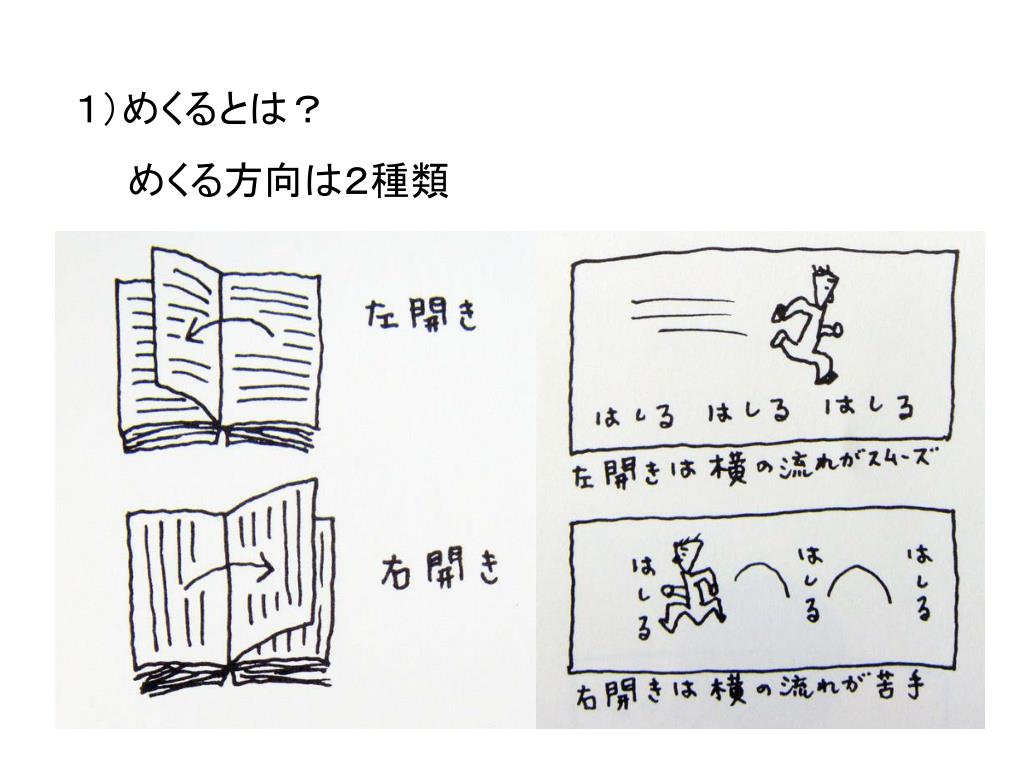 １）めくるとは？
めくる方向は２種類
左開き
右開き
はしる はしる はしる
左開きは横の流れがスムーズ
はしる はしる はしる
右開きは横の流れが苦手